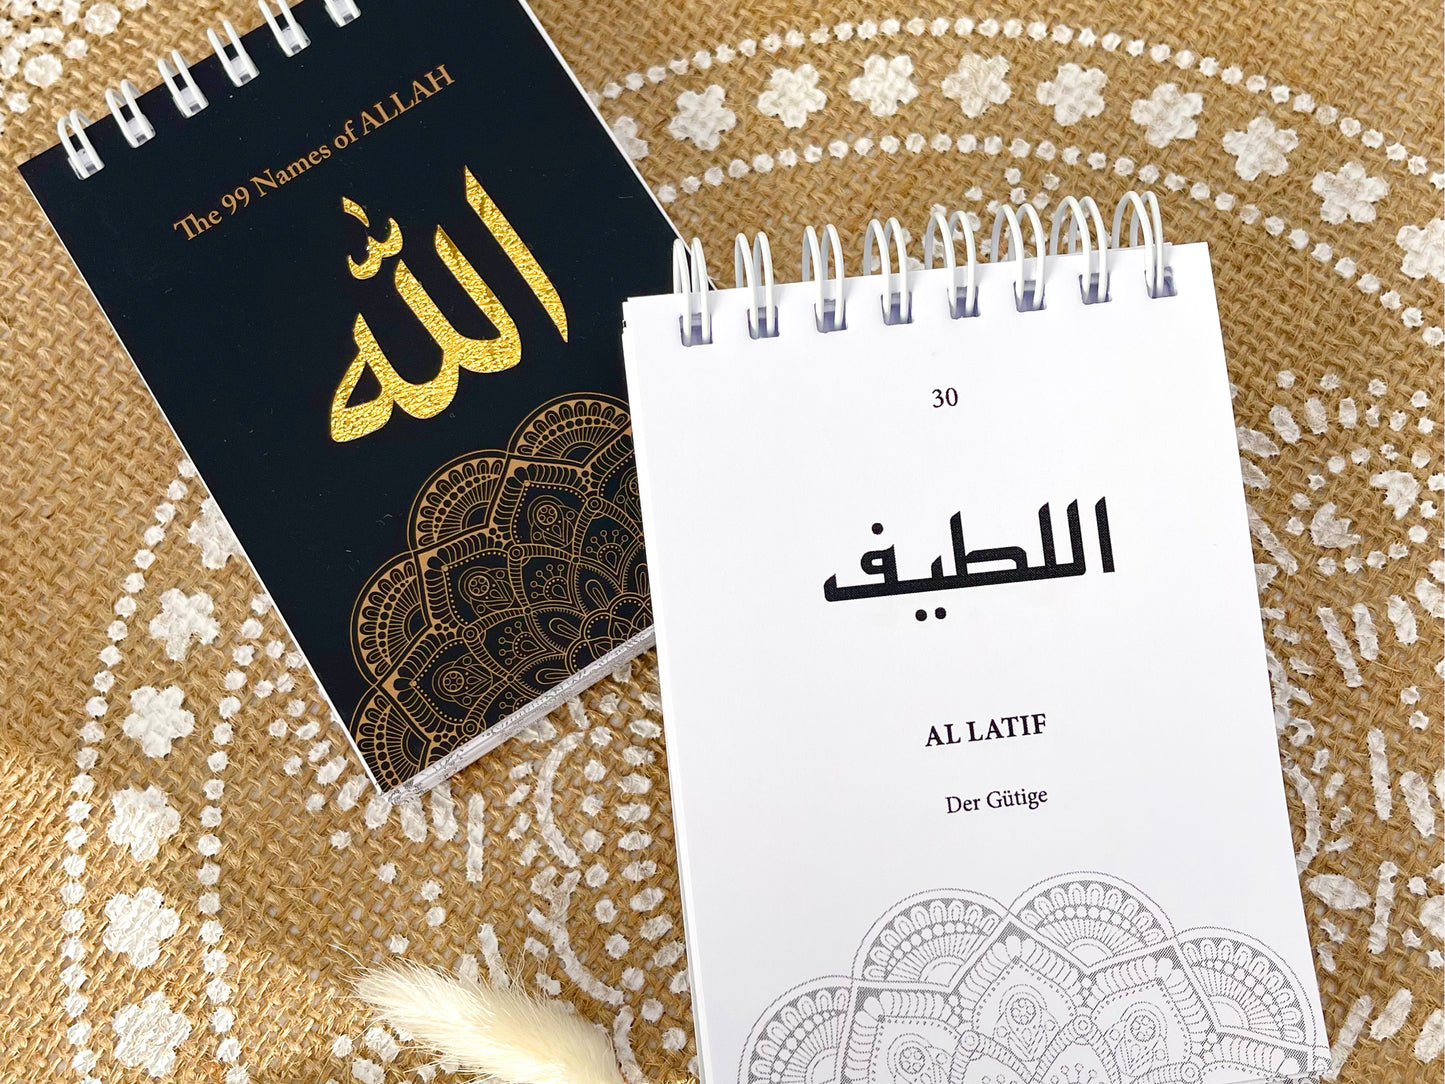 The 99 Names of ALLAH
الله
30
اللطيف
AL LATIF
Der Gütige